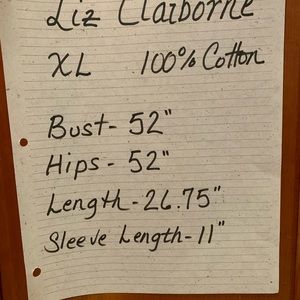 Liz Claiborne
XL 100% Cotton
Bust- 52"
Hips- 52"
Length-26.75"
Sleeve Length-11"